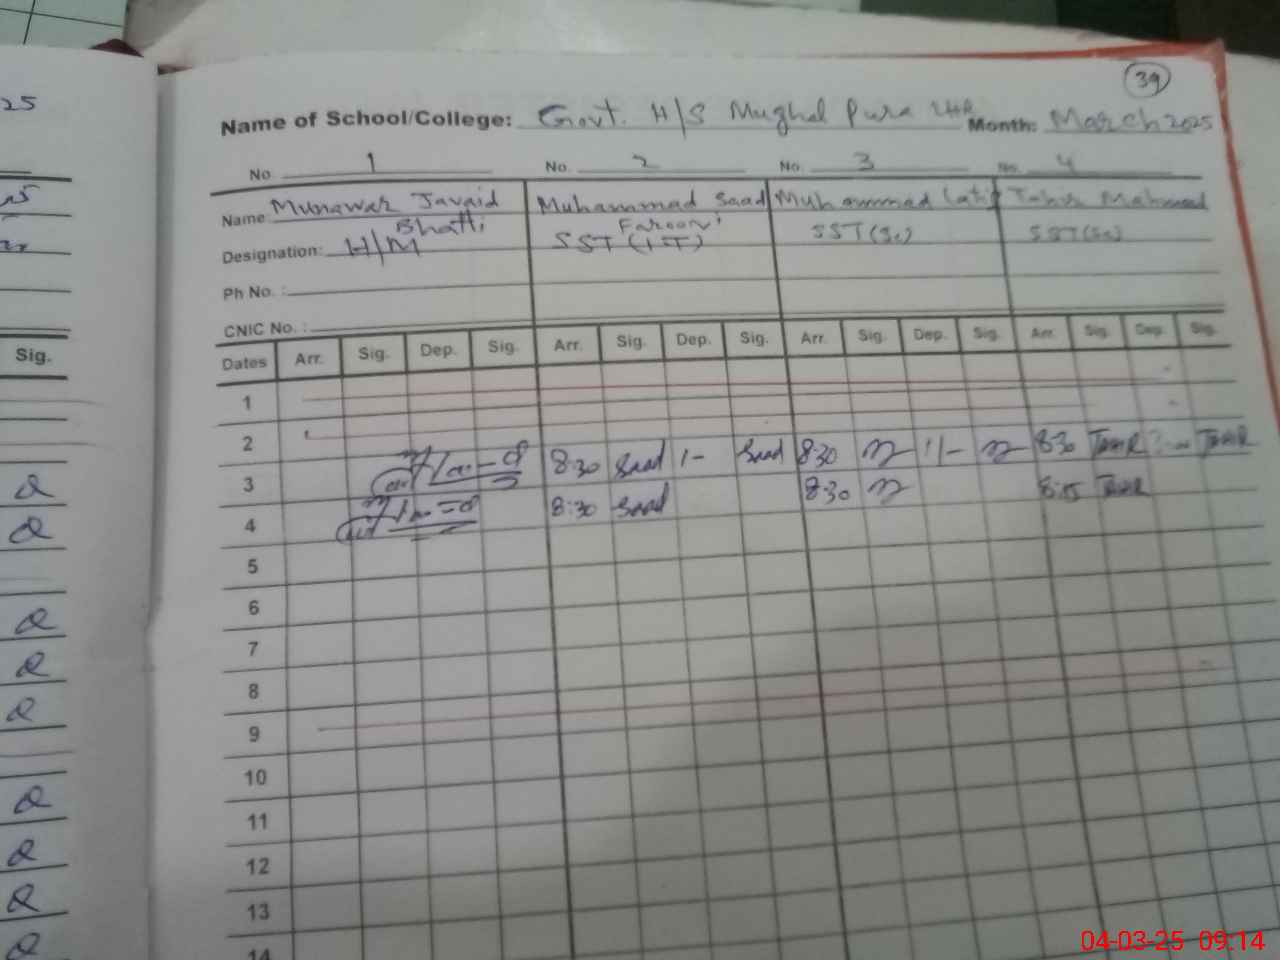 25
39
Name of School/College: Govt. H/S Mughal Pura LHR Month: March 2025
No. 1 No. 2 No. 3 No. 4
Name Munawar Javaid Bhatti Muhammad Saad Farooqi Muhammad Latif Tahir Mahmood
Designation: H/M SST (IT) SST (Sc) SST (Sc)
Ph No. :
CNIC No. :
Sig. Dates Arr. Sig. Dep. Sig. Arr. Sig. Dep. Sig. Arr. Sig. Dep. Sig. Arr. Sig. Dep. Sig.
1
2
3 8:30 Saad 1- Saad 8:30 1/- 8:30 TAHIR TAHIR
4 8:30 Saad 8:30 8:15 TAHIR
5
6
7
8
9
10
11
12
13
14
04-03-25 09:14